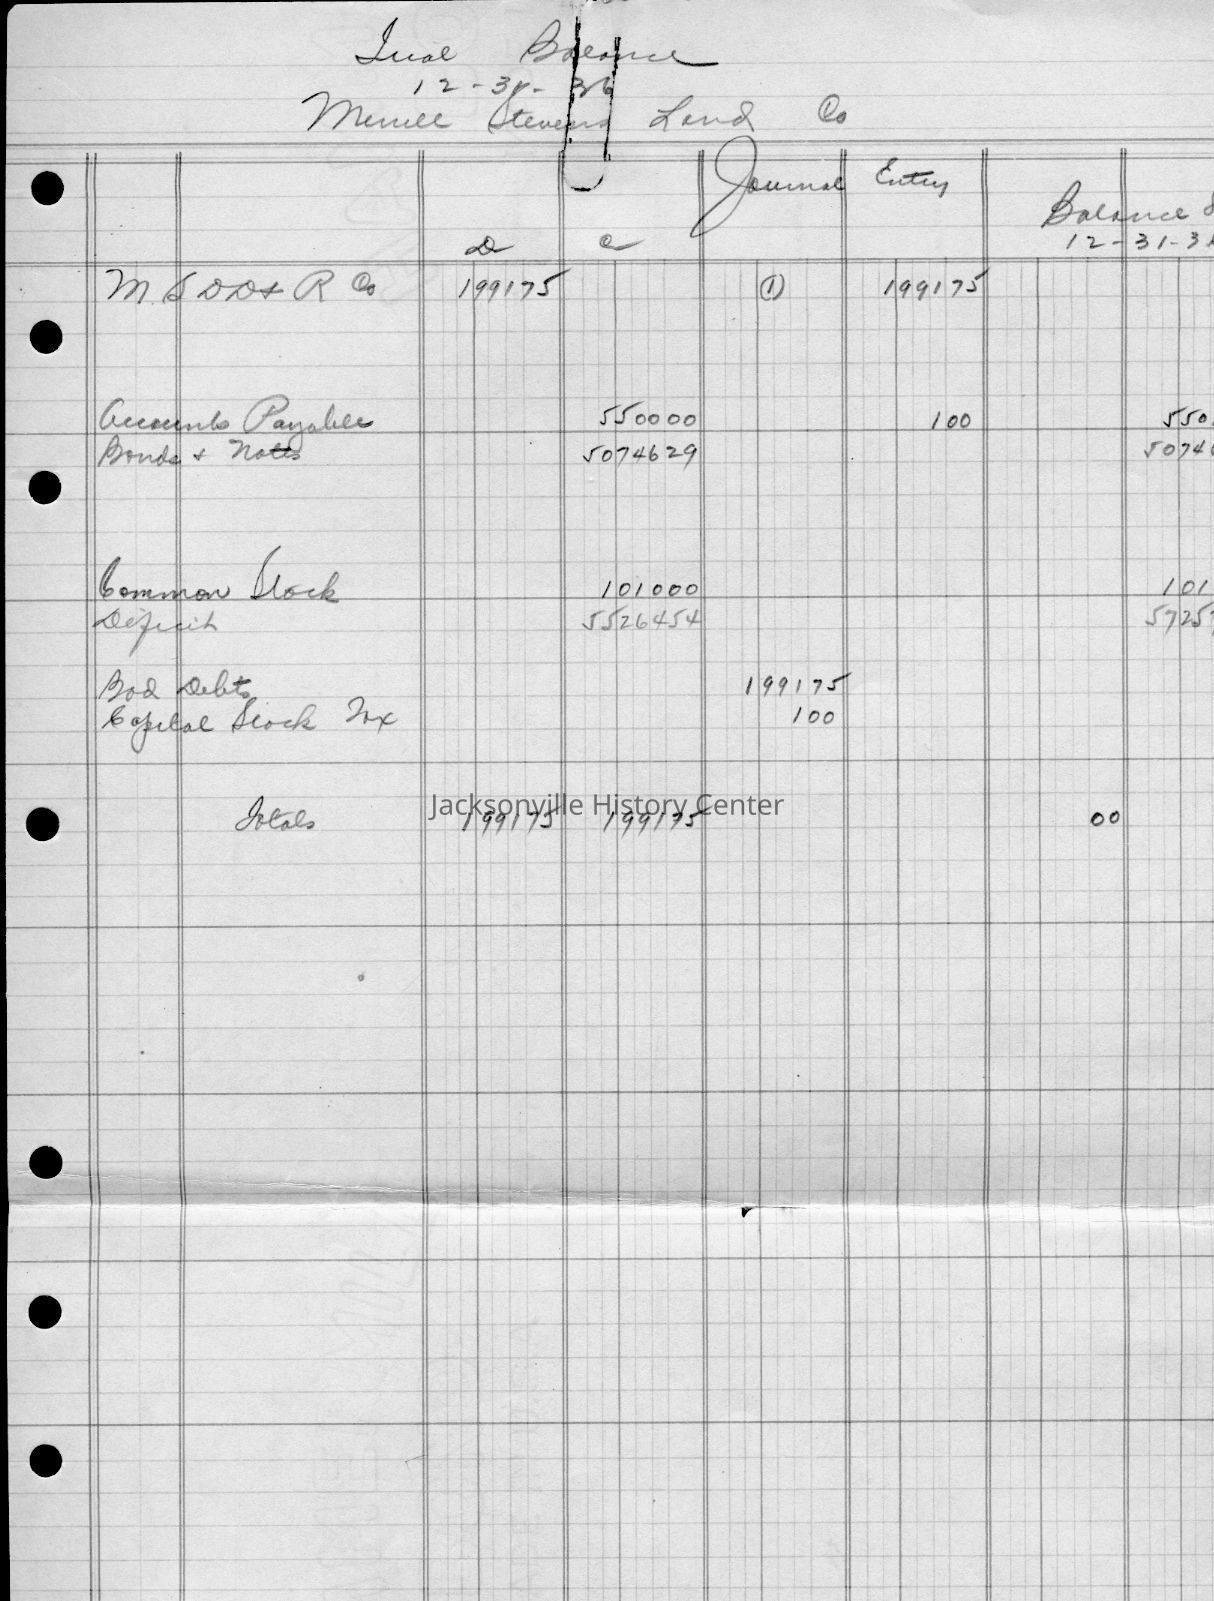 Trial Balance
12-31-36
Merrill Stevens Land Co
Journal Entry
Balance
12-31-3
Dr Cr
M S D D & R Co 199175 ① 199175
Accounts Payable 550000 100 550
Bonds & Notes 5074629 5074
Common Stock 101000 101
Deficit 5526454 5725
Bad Debts 199175
Capital Stock Tax 100
Jacksonville History Center
Totals 199175 199175 00